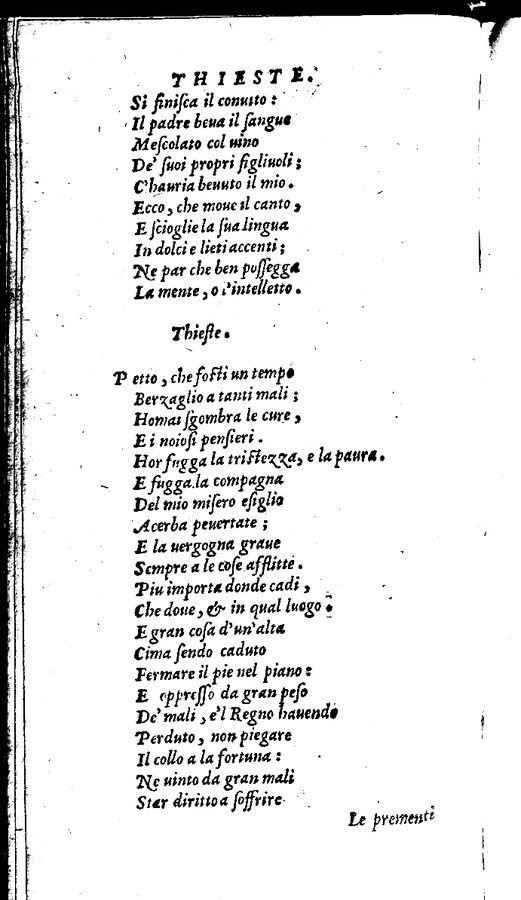 THIESTE.
Si finiſca il conuito:
Il padre beua il ſangue
Meſcolato col uino
De' ſuoi propri figliuoli;
C'hauria beuuto il mio.
Ecco, che moue il canto,
E ſcioglie la ſua lingua
In dolci e lieti accenti;
Ne par che ben poſſegga
La mente, o l'intelletto.
Thieſte.
Petto, che foſti un tempo
Berzaglio a tanti mali;
Homai ſgombra le cure,
E i noioſi penſieri.
Hor fugga la triſtezza, e la paura.
E fugga la compagna
Del mio miſero eſiglio
Acerba peuertate;
E la uergogna graue
Sempre a le coſe afflitte.
Piu importa donde cadi,
Che doue, & in qual luogo.
E gran coſa d'un'alta
Cima ſendo caduto
Fermare il pie nel piano:
E oppreſſo da gran peſo
De' mali, e'l Regno hauendo
Perduto, non piegare
Il collo a la fortuna:
Ne uinto da gran mali
Star diritto a ſoffrire
Le prementi